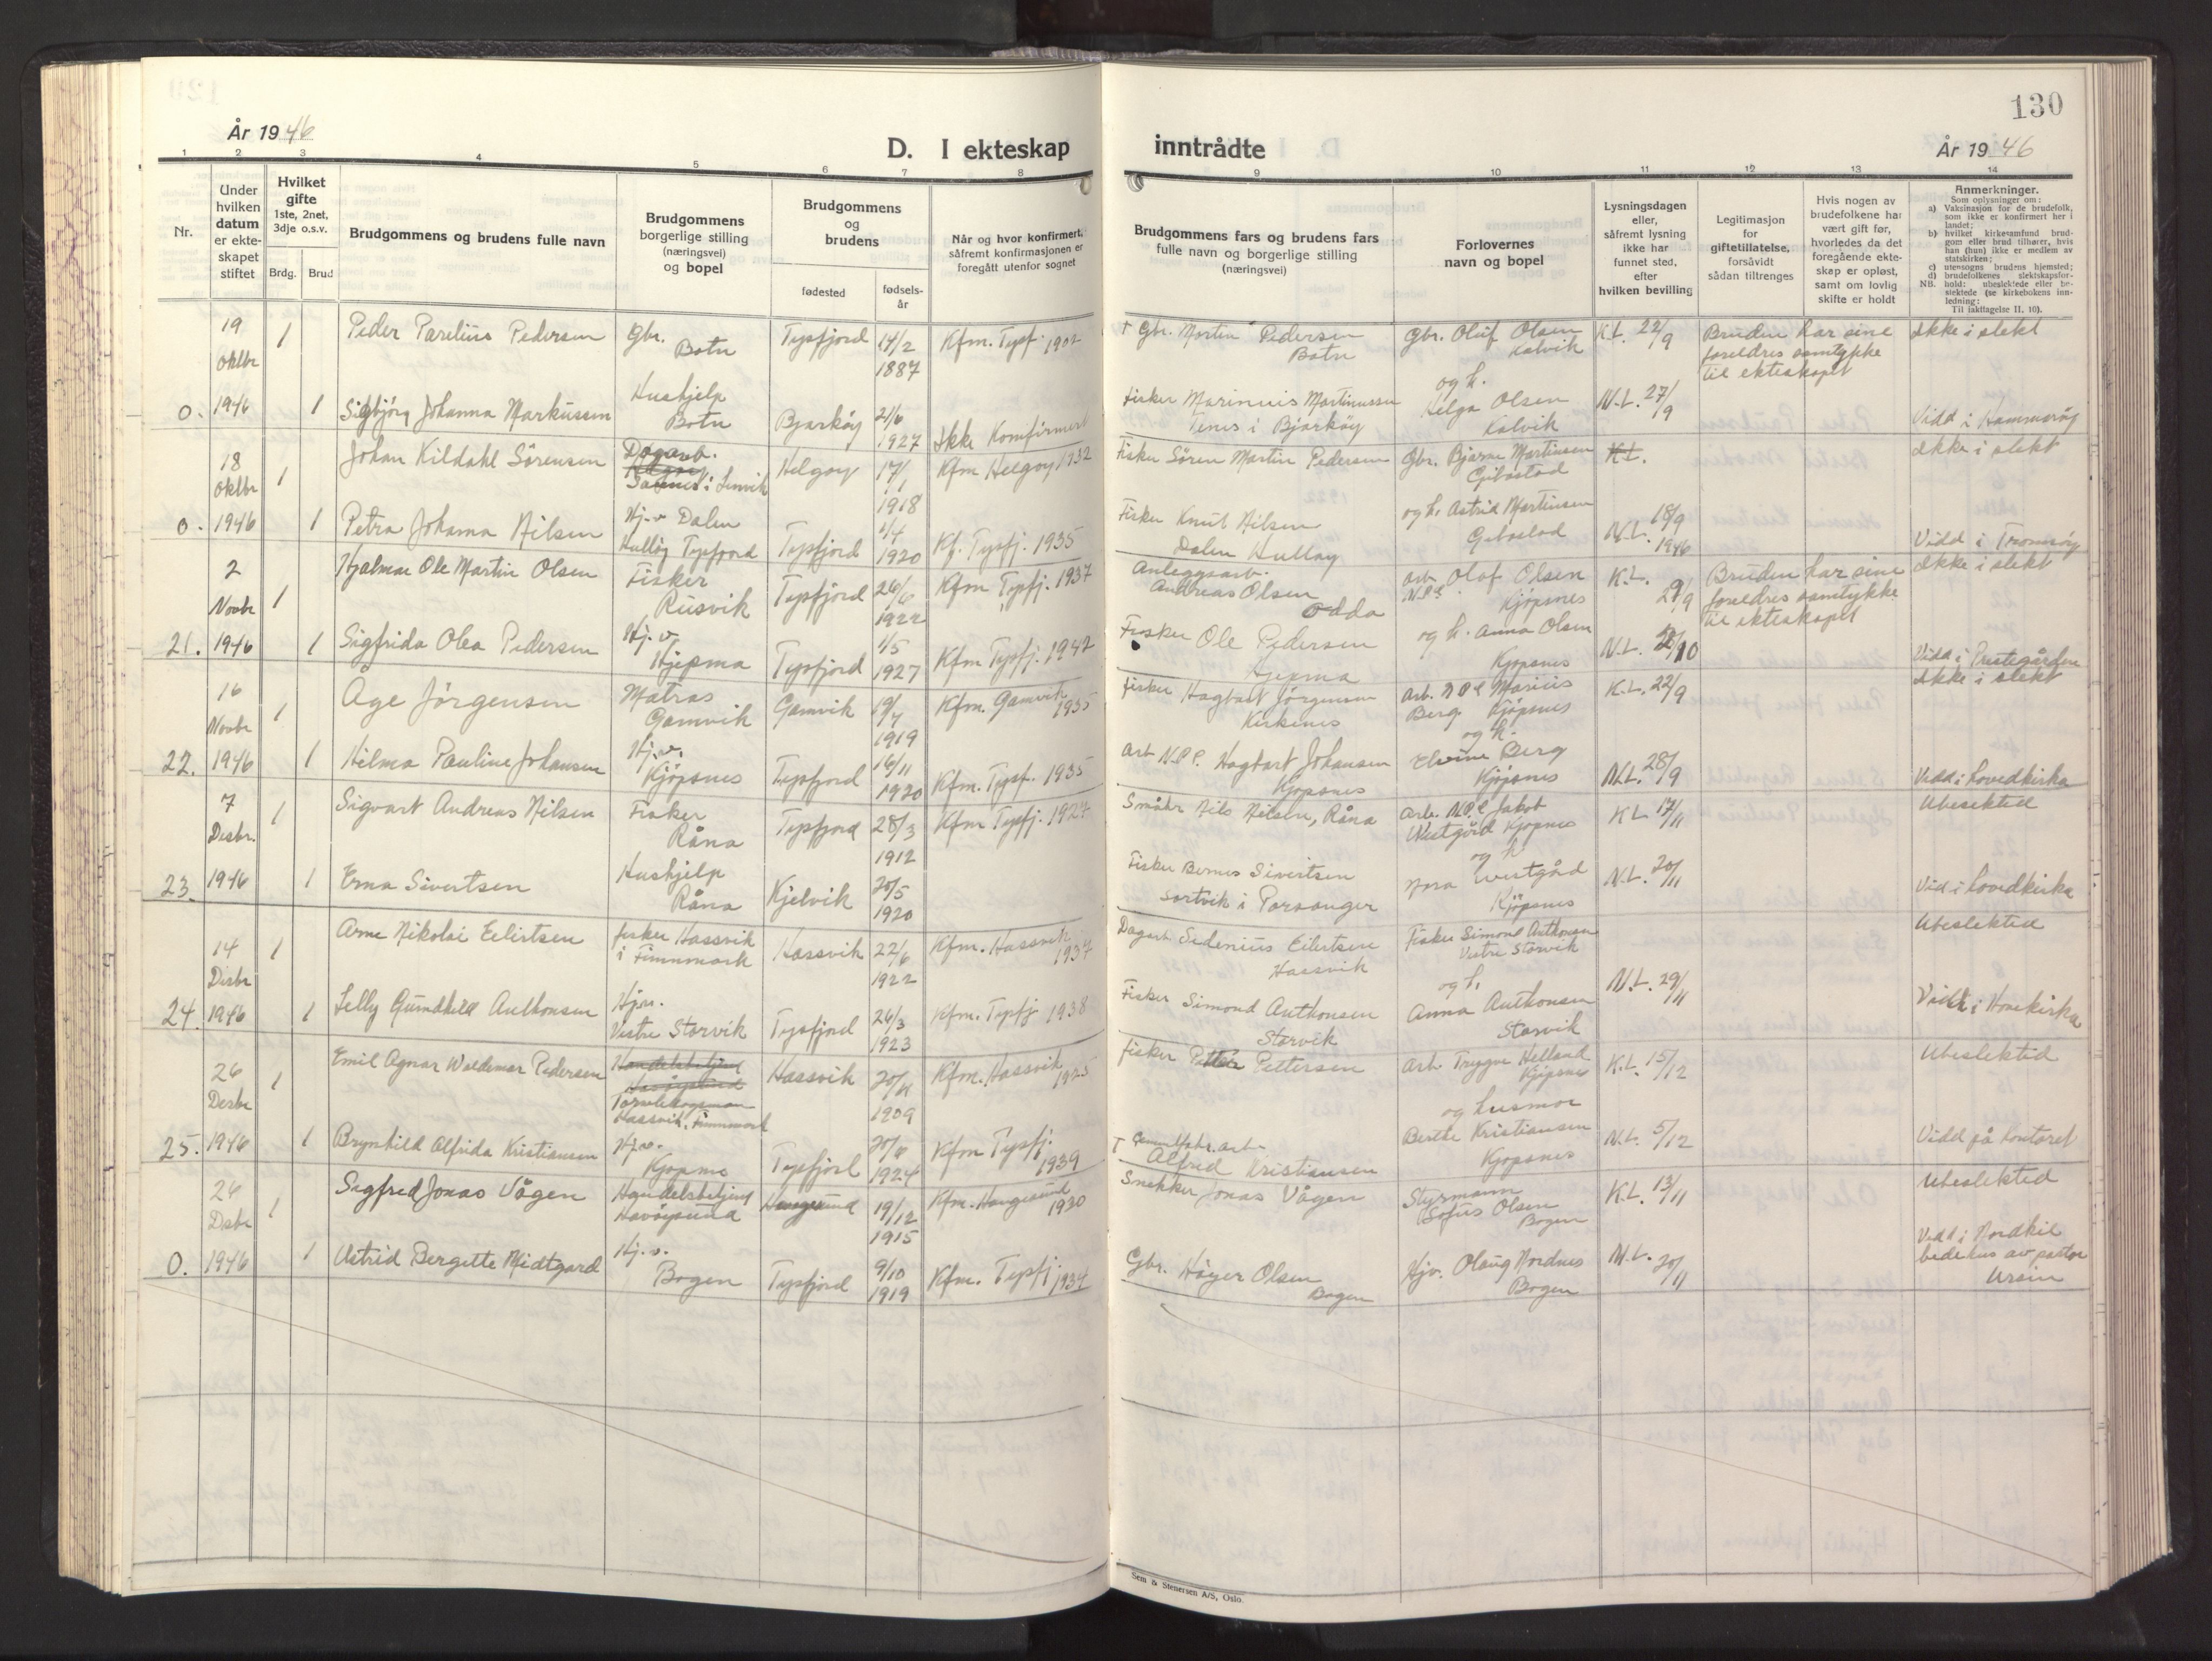 130
År 1946
D. I ekteskap
inntrådte
År 1946
1 2 3 4 5 6 7 8 9 10 11 12 13 14
Nr.
Under
hvilken
datum
er ekte-
skapet
stiftet
Hvilket
gifte
1ste, 2net,
3dje o.s.v.
Brdg. Brud
Brudgommens og brudens fulle navn
Brudgommens
borgerlige stilling
(næringsvei)
og bopel
Brudgommens
og
brudens
fødested
fødsels-
år
Når og hvor konfirmert,
såfremt konfirmasjonen er
foregått utenfor sognet
Brudgommens fars og brudens fars
fulle navn og borgerlige stilling
(næringsvei)
Forlovernes
navn og bopel
Lysningsdagen
eller,
såfremt lysning
ikke har
funnet sted,
efter
hvilken bevilling
Legitimasjon
for
giftetillatelse,
forsåvidt
sådan tiltrenges
Hvis nogen av
brudefolkene har
vært gift før,
hvorledes da det
foregående ekte-
skap er opløst,
samt om lovlig
skifte er holdt
Anmerkninger.
Som oplysninger om:
a) Vaksinasjon for de brudefolk,
som ikke er konfirmert her i
landet;
b) hvilket kirkesamfund brud-
gom eller brud tilhører, hvis
han (hun) ikke er medlem av
statskirken;
c) utensogns brudens hjemsted;
d) brudefolkenes slektskapsfor-
hold: ubeslektede eller be-
slektede (se kirkebokens inn-
ledning:
NB. Til iakttagelse II, 10).
0.
19
Oktbr
1946
1
Peder Parelius Pedersen
Gbr.
Botn
Tysfjord
14/2
1887
Kfm. Tysf. 1902
† Gbr. Martin Pedersen
Botn
Gbr. Oluf Olsen
Kalvik
K.L. 22/9
Bruden har sine
foreldres samtykke
til ekteskapet
Ikke i slekt
1
Sigbjørg Johanna Markussen
Hushjelp
Botn
Bjarkøy
21/6
1927
Ikke Konfirmert
Fisker Marinius Martinussen
i Bjarkøy
og h.
Helga Olsen
Kalvik
N.L. 27/9
Vidd i Hammarøy
0.
18
Oktbr
1946
1
Johan Kildahl Sörensen
Dagarb.
i Lenvik
Helgøy
17/1
1918
Kfm Helgøy 1932
Fisker Sören Martin Pedersen
Gbr. Bjarne Martinsen
Gibostad
K.L.
Ikke i slekt
1
Petra Johanna Nilsen
Hj.v Dalen
Hulløy Tysfjord
Tysfjord
1/4
1920
Kf. Tysfj. 1935
Fisker Knut Nilsen
Dalen Hulløy
og h. Astrid Martinsen
Gibostad
N.L. 18/9
1946
Vidd i Tromsøy
21.
2
Novbr
1946
1
Hjalmar Ole Martin Olsen
Fisker
Rusvik
Tysfjord
26/6
1922
Kfm Tysfj. 1937
Anleggsarb.
Andreas Olsen
Odda
Arb. Olaf Olsen
N.P.C. Kjøpsnes
K.L.
29/9
Bruden har sine
foreldres samtykke
til ekteskapet
Ikke i slekt
1
Sigfrida Olea Pedersen
Hj.v.
Hjepma
Tysfjord
1/5
1927
Kfm Tysfj. 1942
Fisker Ole Pedersen
Hjepma
og h. Anna Olsen
Kjøpsnes
N.L.
Vidd i Prestegården
22.
16
Novbr
1946
1
Age Jörgensen
Matros
Gamvik
Gamvik
19/7
1919
Kfm. Gamvik
1935
Fisker Hagbart Jörgensen
Kirkenes
Arb. N.P.C. Marius
Berg Kjøpsnes
K.L. 22/9
Ikke i slekt
1
Hilma Pauline Johansen
Hj.v.
Kjöpsnes
Tysfjord
16/11
1920
Kfm. Tysf. 1935
Arb N.P.C. Hagbart Johansen
Kjöpsnes
og h.
Elvine Berg
Kjöpsnes
N.L. 28/9
Vidd i hovedkirka
23.
7
Desbr.
1946
1
Sigvart Andreas Nilsen
Fisker
Råna
Tysfjord
28/3
1912
Kfm Tysfj. 1927
Småbr Nils Nilsen, Råna
Arb. N.P.C. Jakob
Westgård Kjöpsnes
K.L 17/11
Ubeslektid
1
Erna Sivertsen
Hushjelp
Råna
Kjelvik
20/5
1920
Fisker Bernes Sivertsen
Sortvik i Porsanger
og h
Nora Westgård
Kjöpsnes
N.L. 20/11
Vid i hovedkirka
24.
14
Disbr
1946
1
Arne Nikolai Eilertsen
fisker Hassvik
i Finnmark
Hassvik
22/6
1922
Kfm. Hassvik
1937
Dagarb Sedenius Eilertsen
Hassvik
Fisker Simond Anthonsen
Vestre Storvik
Ubeslektid
1
Selly Gundhild Anthonsen
Hj.v.
Vestre Storvik
Tysfjord
26/3
1923
Kfm. Tysfj 1938
Fisker Simond Anthonsen
Storvik
og h.
Anna Anthonsen
Storvik
N.L. 29/11
Vidd i Hovedkirka
25.
26
Desbr
1946
1
Emil Agnar Waldemar Pedersen
Handelsbetjent
Havøysund
Hassvik, Finnmark
Hassvik
1909
Kfm. Hassvik
1925
fisker Petter Pettersen
Arb. Trygve Helland
Kjöpsnes
K.L. 15/12
Ubeslektid
1
Brynhild Alfrida Kristiansen
Hj.v.
Kjöpsnes
Tysfjord
20/8
1924
Kfm Tysfj.
1939
† Gammelfabr. arb.
Alfred Kristiansen
og husmor
Berthe Kristiansen
Kjöpsnes
N.L. 5/12
Vidd på kontoret
0.
26
Dsbr
1946
1
Sigfred Jonas Vågen
Handelsbetjent
Havöysund
Haugesund
19/12
1915
Kfm. Haugesund
1930
Snekker Jonas Vågen
Styrmann
Sofus Olsen
Bogen
K.L. 13/11
Ubeslektid
1
Astrid Bergitte Midtgard
Hj.v.
Bogen
Tysfjord
9/10
1919
Kfm. Tysfj.
1934
Gbr. Höyer Olsen
Bogen
Hjv. Olaug Nordnes
Bogen
N.L. 20/11
Vidd i Nordkil
bedehus av pastor
Ursin
Sem & Stenersen A/S, Oslo.